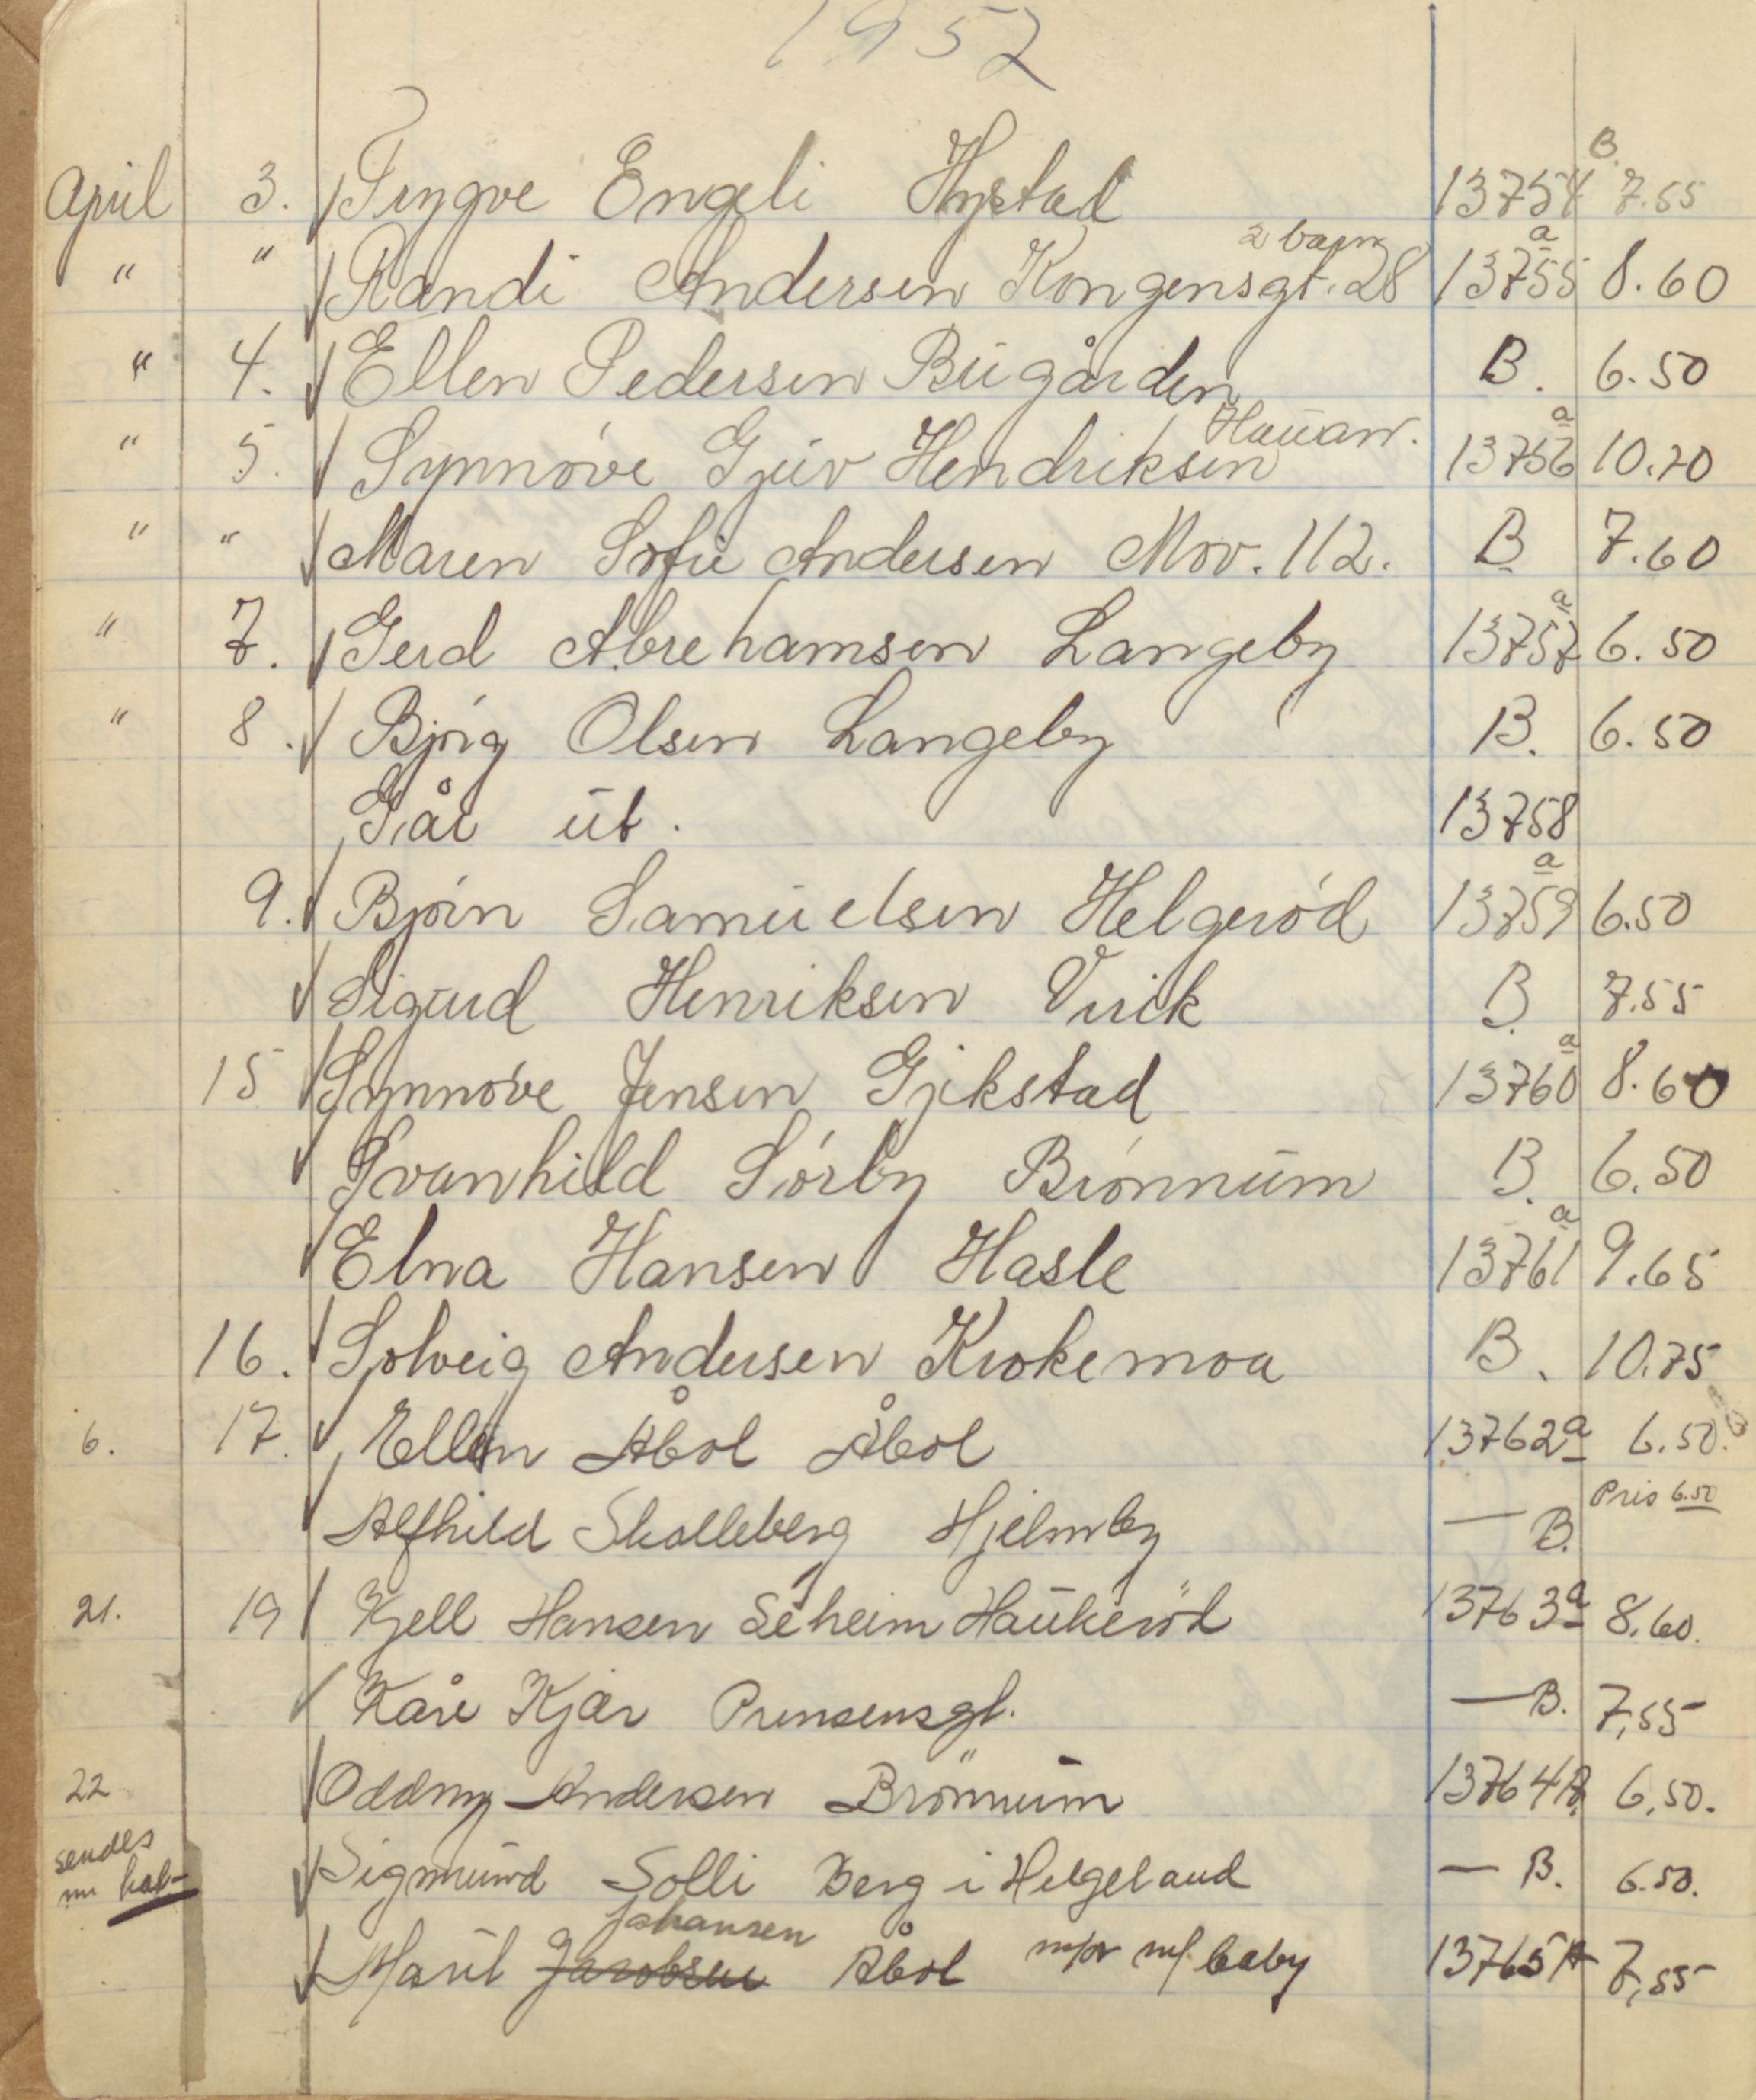 1952
April 3. Trygve Engeli Hystad 13754 B. 7.55
" " Randi Andersen Kongensgt. 28 2 barn 13755 a 8.60
" 4. Ellen Pedersen Bugården B. 6.50
" 5. Synnøve Gjuv Hendriksen Hauan. 13756 a 10.70
" " Maren Sofie Andersen Mov. 112. B 7.60
" 7. Gerd Abrehamsen Langeby 13757 a 6.50
" 8. Bjørg Olsen Langeby B. 6.50
Går ut. 13758
9. Bjørn Samuelsen Helgerød 13759 a 6.50
Sigurd Henriksen Virik B. 7.55
15 Synnøve Jensen Gjekstad 13760 a 8.60
Svanhild Sørby Brønnum B. 6.50
Elna Hansen Hasle 13761 a 9.65
16. Solveig Andersen Krokemoa B. 10.75
6. 17. Ellen Åbol Åbol 13762 a 6.50.
Alfhild Skolleberg Hjelmby — B. Pris 6.50
21. 19 Kjell Hansen Seheim Haukerød 13763 a 8.60.
Kåre Kjær Prinsensgt. — B. 7,55
22 Oddny Andersen Brönnum 13764 A 6,50.
sendes
Sigmund Solli Berg i Helgeland — B. 6.50.
Johansen
Marit Jacobsen Åbol mor m/ baby 13765 A 7,55